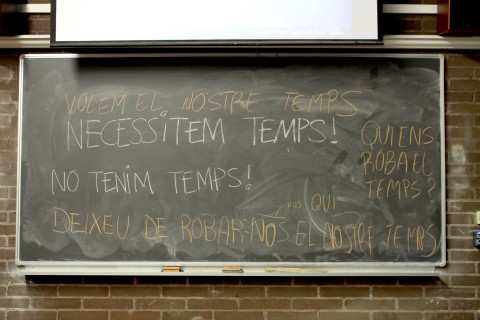 VOLEM EL NOSTRE TEMPS
NECESSITEM TEMPS!
NO TENIM TEMPS!
QUI ENS
ROBA EL
TEMPS?
QUI
DEIXEU DE ROBAR-NOS EL NOSTRE TEMPS